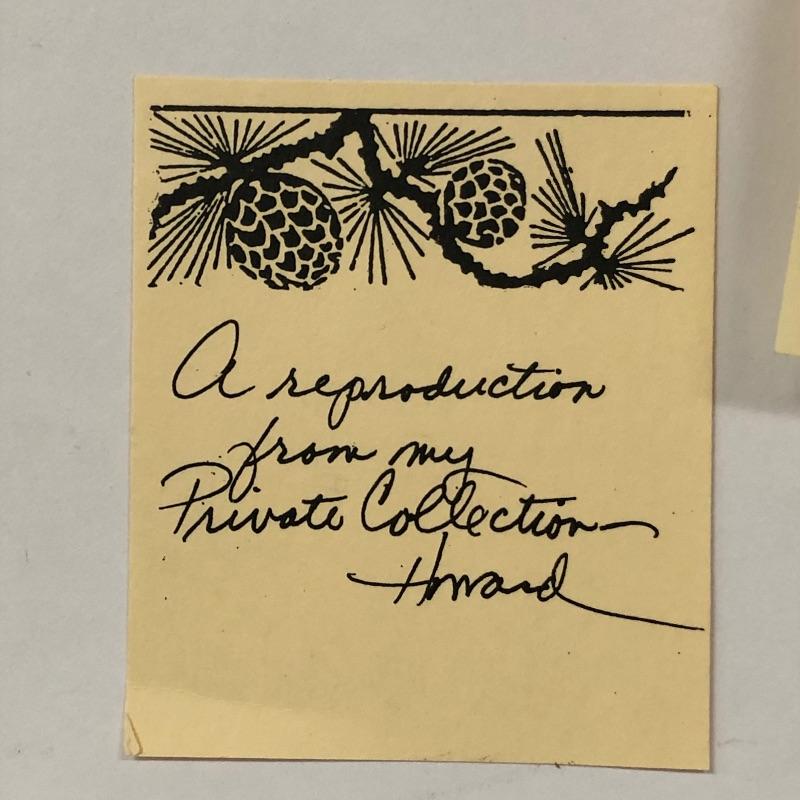 A reproduction
from my
Private Collection—
Howard